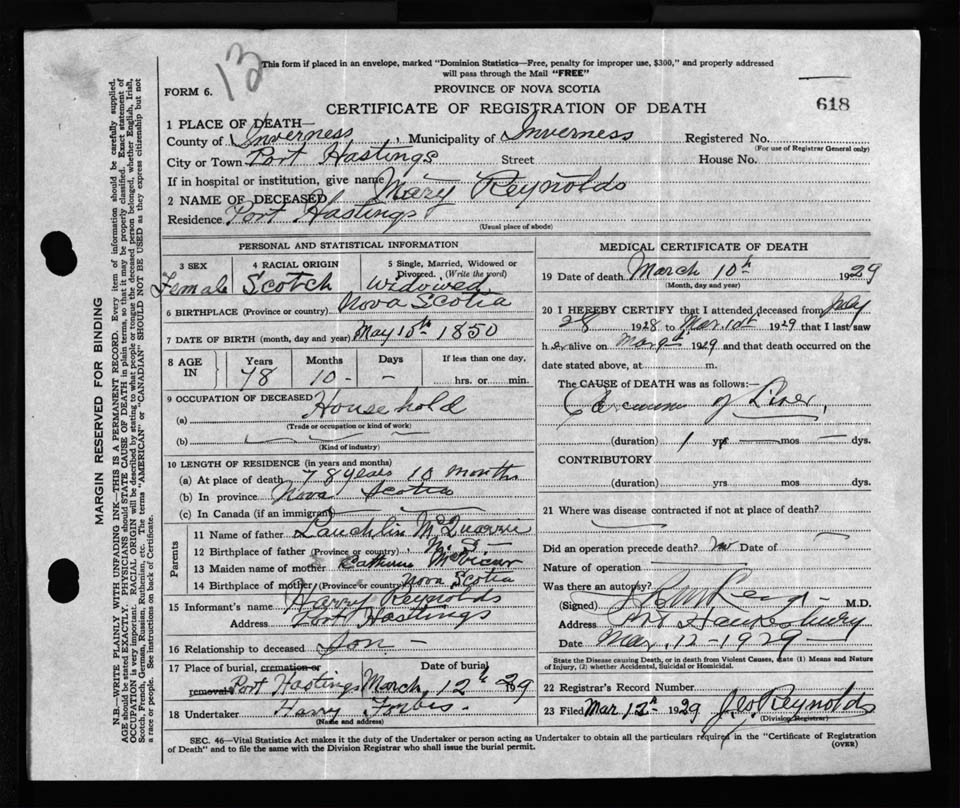 13
This form if placed in an envelope, marked "Dominion Statistics—Free, penalty for improper use, $300," and properly addressed
will pass through the Mail "FREE"
FORM 6.
PROVINCE OF NOVA SCOTIA
CERTIFICATE OF REGISTRATION OF DEATH
618
1 PLACE OF DEATH—
County of Inverness, Municipality of Inverness Registered No.
(For use of Registrar General only)
City or Town Port Hastings Street House No.
If in hospital or institution, give name
2 NAME OF DECEASED Mary Reynolds
Residence Port Hastings
(Usual place of abode)
MARGIN RESERVED FOR BINDING
N.B.—WRITE PLAINLY WITH UNFADING INK—THIS IS A PERMANENT RECORD. Every item of information should be carefully supplied.
AGE should be stated EXACTLY. PHYSICIANS should STATE CAUSE OF DEATH in plain terms, so that it may be properly classified. Exact statement of
OCCUPATION is very important. RACIAL ORIGIN will be described by stating to what people or tongue the deceased person belonged, whether English, Irish,
Scotch, French, German, Russian, Ruthenian, etc. The terms "AMERICAN" or "CANADIAN" SHOULD NOT BE USED as they express citizenship but not
a race or people. See instructions on back of Certificate.
PERSONAL AND STATISTICAL INFORMATION
3 SEX
Female
4 RACIAL ORIGIN
Scotch
5 Single, Married, Widowed or
Divorced. (Write the word)
Widowed
6 BIRTHPLACE (Province or country) Nova Scotia
7 DATE OF BIRTH (month, day and year) May 10th 1850
8 AGE IN
Years Months Days If less than one day,
78 10 - - hrs. or min.
9 OCCUPATION OF DECEASED
(a) Household
(Trade or occupation or kind of work)
(b)
(Kind of industry)
10 LENGTH OF RESIDENCE (in years and months)
(a) At place of death 78 years 10 months
(b) In province Nova Scotia
(c) In Canada (if an immigrant)
Parents
11 Name of father Lauchlin McQuarrie
12 Birthplace of father (Province or country) N. S.
13 Maiden name of mother Catherine McVicar
14 Birthplace of mother (Province or country) Nova Scotia
15 Informant's name Harry Reynolds
Address Port Hastings
16 Relationship to deceased Son -
17 Place of burial, cremation or Date of burial
removal Port Hastings March, 12th 1929
18 Undertaker Harry Forbes -
(Name and address)
MEDICAL CERTIFICATE OF DEATH
19 Date of death March 10th 1929
(Month, day and year)
20 I HEREBY CERTIFY that I attended deceased from July
28 1928 to Mar. 10th 1929 that I last saw
her alive on Mar 9th 1929 and that death occurred on the
date stated above, at m.
The CAUSE of DEATH was as follows:—
of Liver,
(duration) 1 yrs — mos — dys.
CONTRIBUTORY
(duration) yrs. mos. dys.
21 Where was disease contracted if not at place of death?
Did an operation precede death? no Date of
Nature of operation
Was there an autopsy?
(Signed) M.D.
Address Pt Hawkesbury
Date Mar, 12 - 1929
State the Disease causing Death, or in death from Violent Causes, state (1) Means and Nature
of Injury, (2) whether Accidental, Suicidal or Homicidal.
22 Registrar's Record Number
23 Filed Mar 12th 1929 Geo. Reynolds
(Division Registrar)
SEC. 46—Vital Statistics Act makes it the duty of the Undertaker or person acting as Undertaker to obtain all the particulars required in the "Certificate of Registration
of Death" and to file the same with the Division Registrar who shall issue the burial permit.
(OVER)